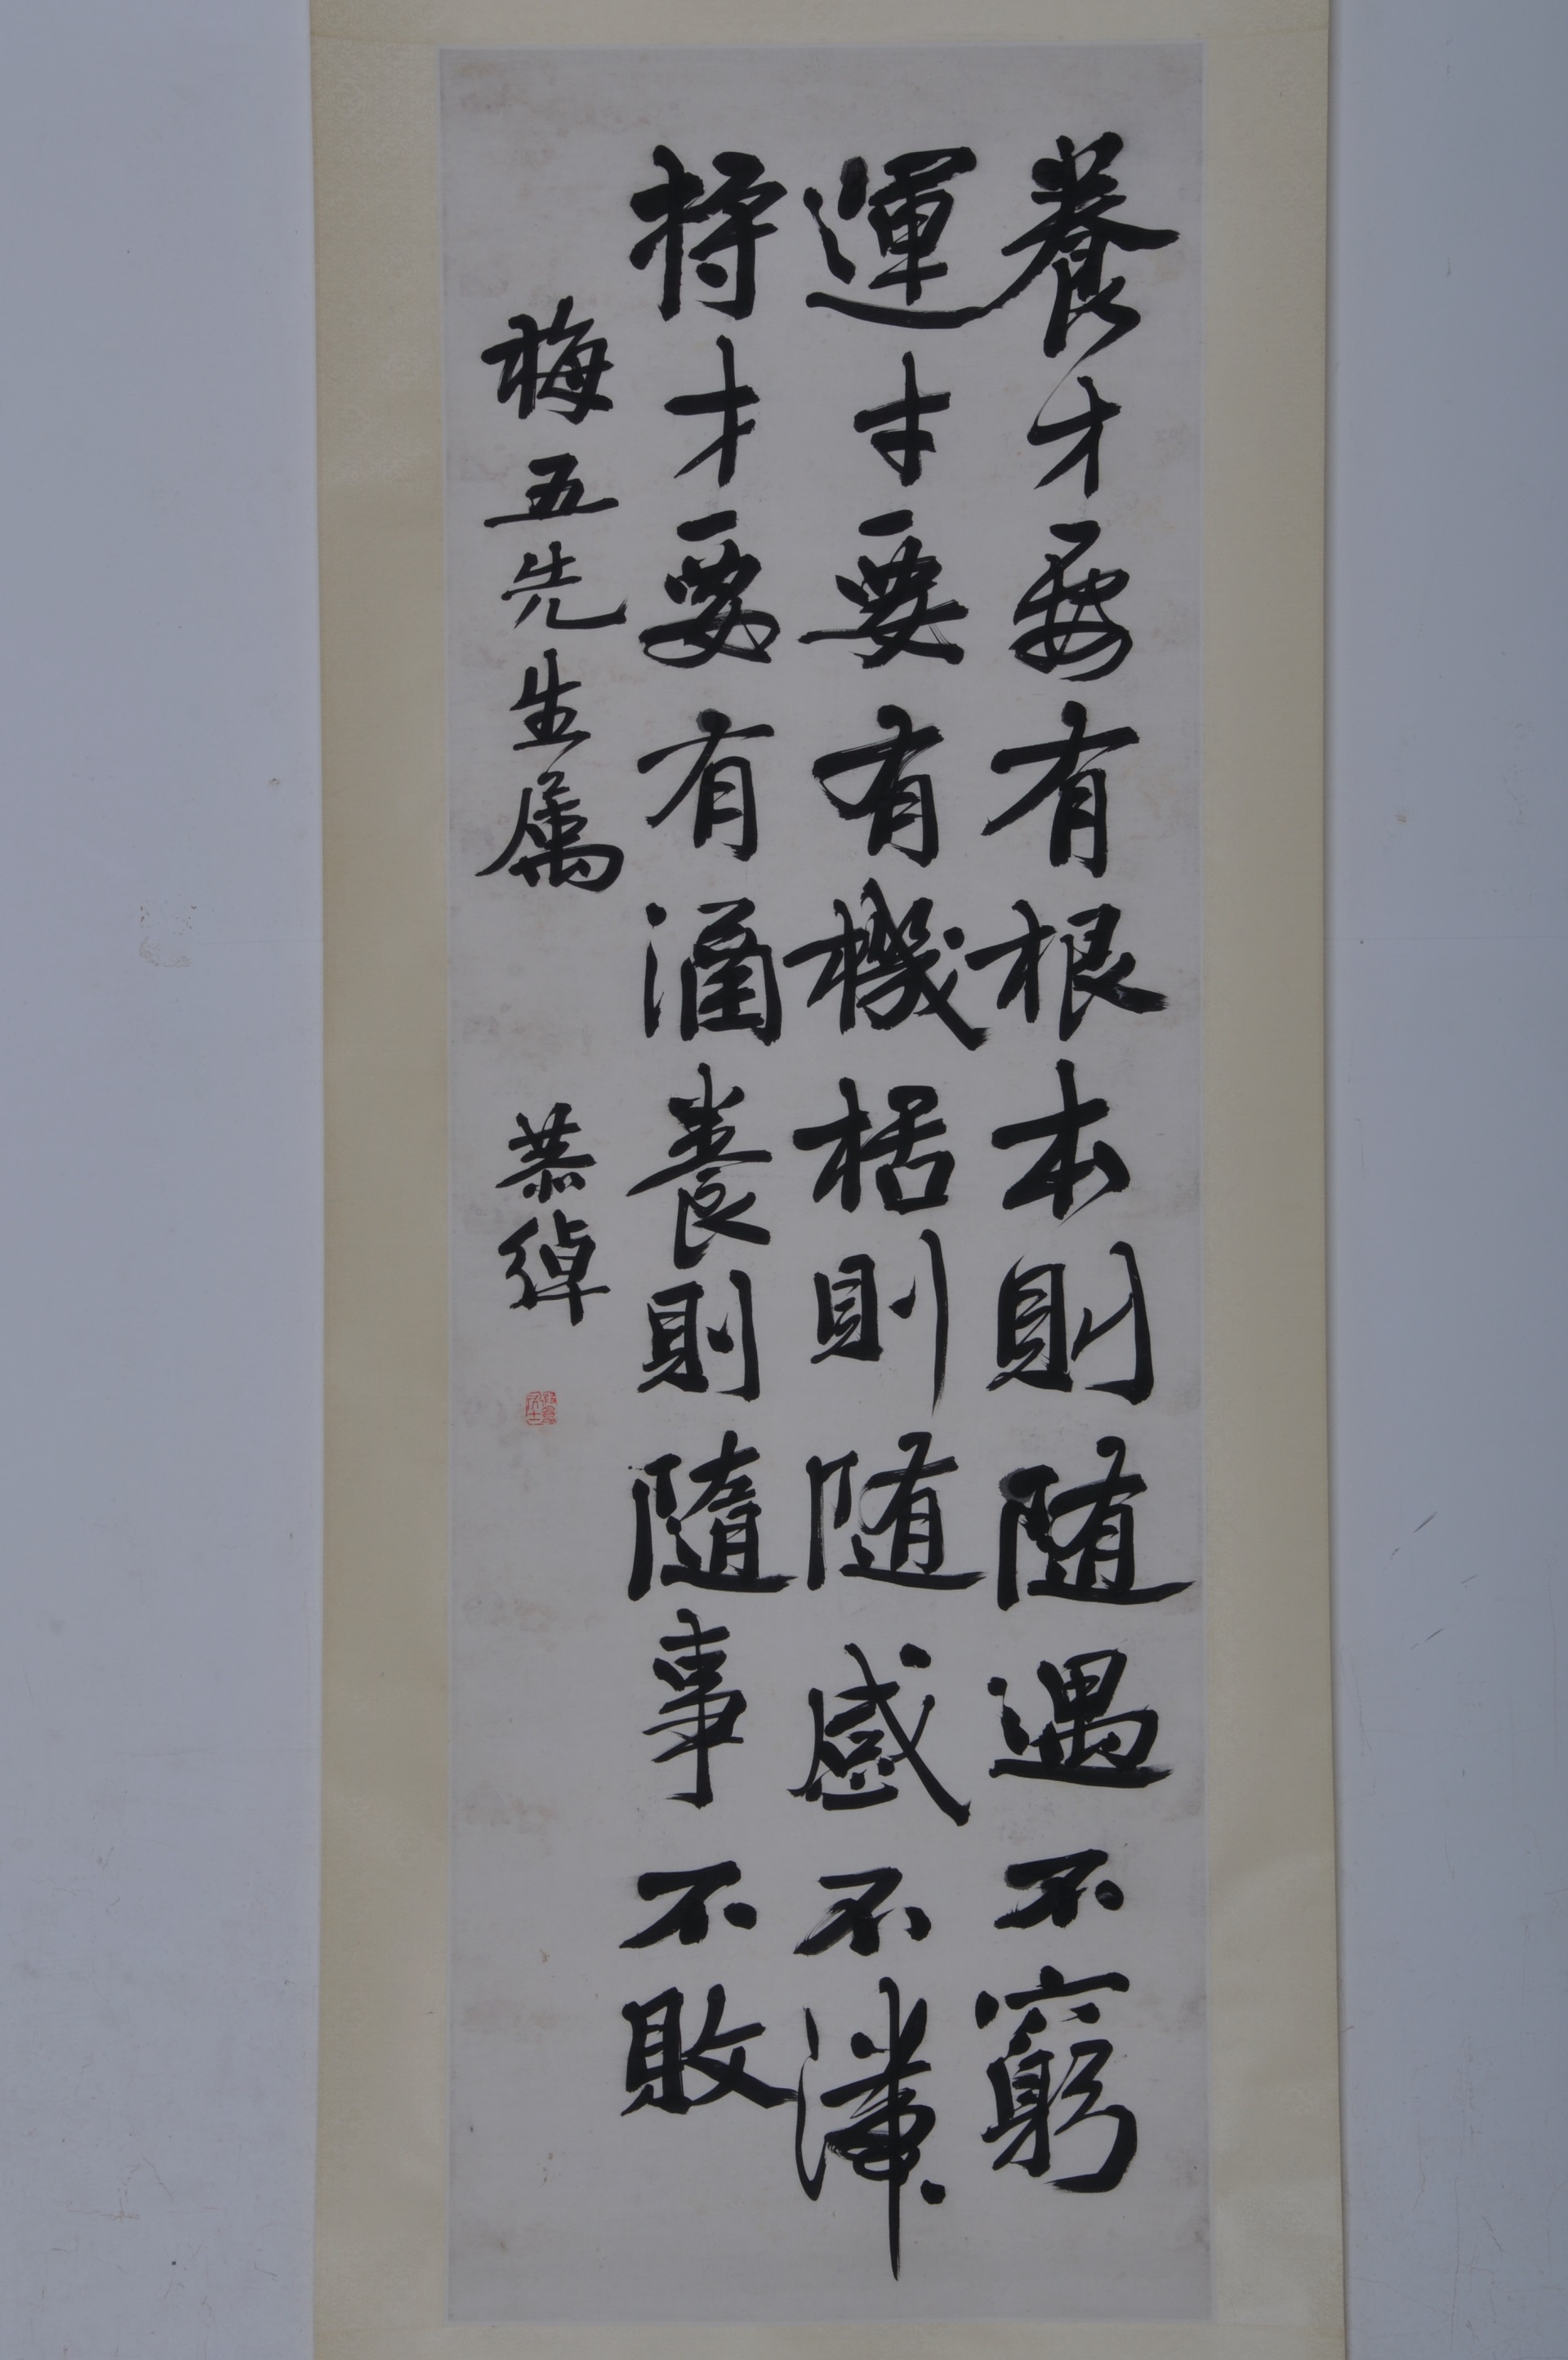 養才要有根本則随遇不窮
運才要有機栝則随感不滯
持才要有涵養則隨事不敗
梅五先生属
恭綽